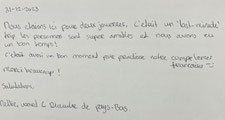 31-12-2023
Nous étions ici pour deux journées. C'était un "last-minute"
trip les personnes sont super aimables et nous avons eu
un bon temps!
C'était aussi un bon moment pour pratiquer notre
français
Merci beaucoup!
Salutations
Nellie, & de Pays-Bas.